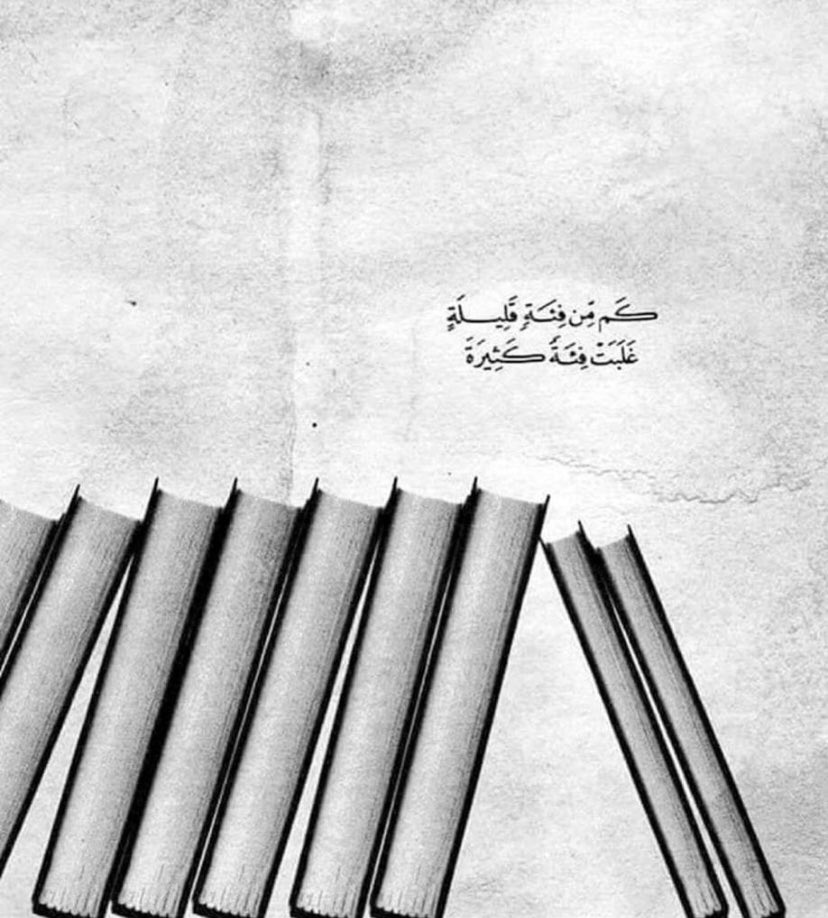 كَم مِّن فِئَةٍ قَلِيلَةٍ
غَلَبَتْ فِئَةً كَثِيرَةً